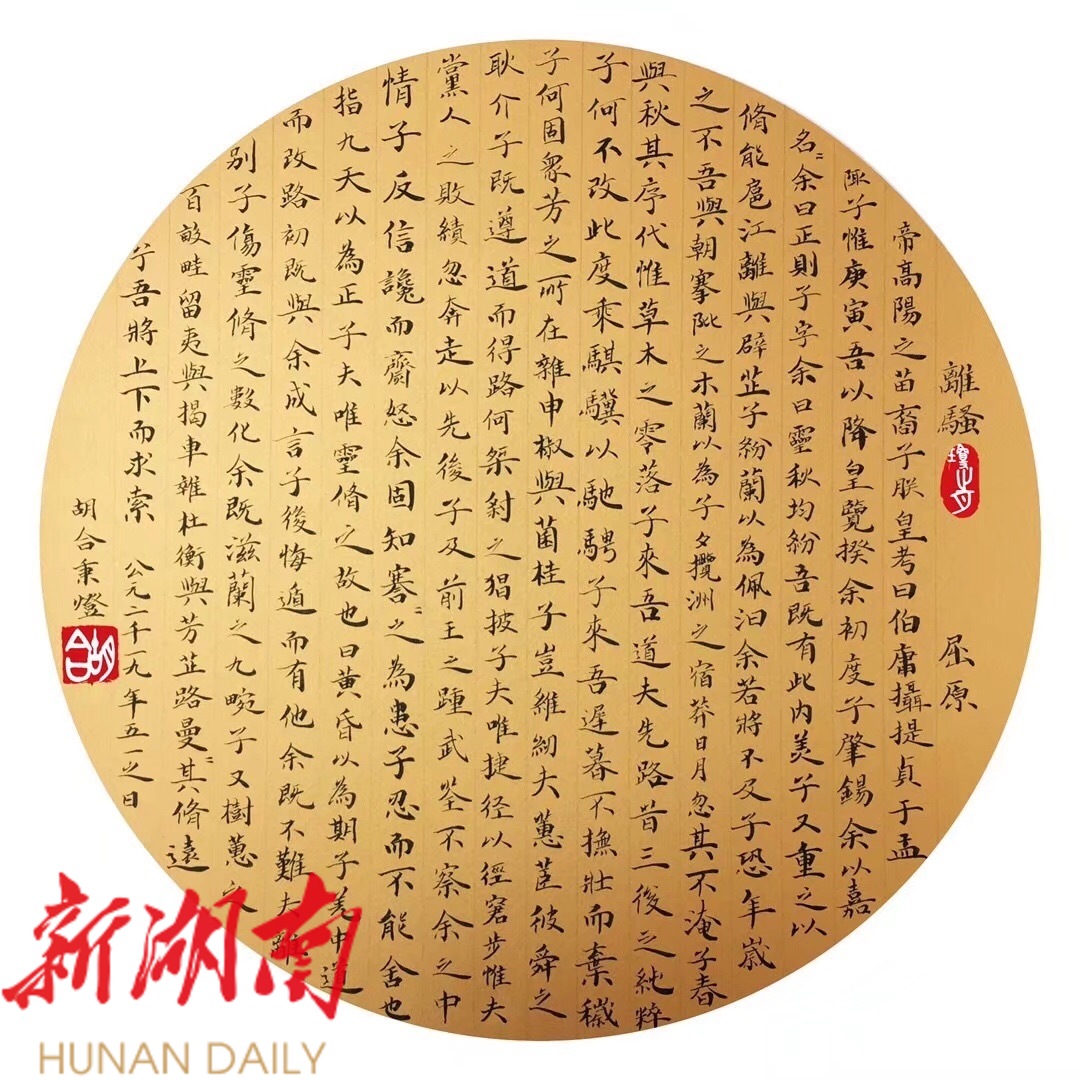 離騷 屈原
帝高陽之苗裔兮朕皇考曰伯庸攝提貞于孟
陬兮惟庚寅吾以降皇覽揆余初度兮肇錫余以嘉
名〻余曰正則兮字余曰靈秋均紛吾既有此內美兮又重之以
脩能扈江離與辟芷兮紛蘭以為佩汩余若將不及兮恐年歲
之不吾與朝搴阰之木蘭以為兮夕攬洲之宿莽日月忽其不淹兮春
與秋其序代惟草木之零落兮來吾道夫先路昔三後之純粹
兮何不改此度乘騏驥以馳騁兮來吾遲暮不撫壯而棄穢
兮何固眾芳之所在雜申椒與菌桂兮豈維紉夫蕙茝彼舜之
耿介兮既遵道而得路何桀紂之猖披兮夫唯捷径以徑窘步惟夫
黨人之敗績忽奔走以先後兮及前王之踵武荃不察余之中
情兮反信讒而齌怒余固知謇〻之為患兮忍而不能舍也
指九天以為正兮夫唯靈脩之故也曰黃昏以為期兮羌中道
而改路初既與余成言兮後悔遁而有他余既不難夫離
別兮傷靈脩之數化余既滋蘭之九畹兮又樹蕙之
百畝畦留夷與揭車雜杜衡與芳芷路曼〻其脩遠
兮吾將上下而求索 公元二千一九年五一之日
胡合秉燈
胡合
新湖南
HUNAN DAILY